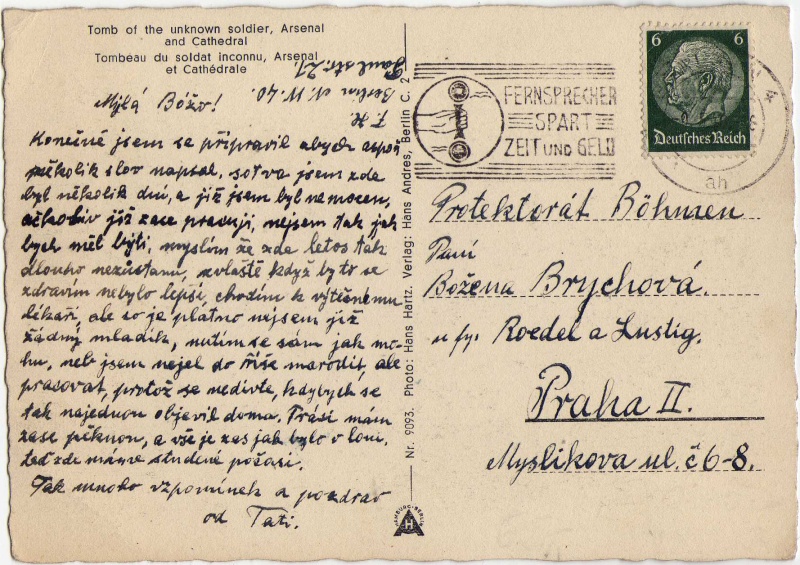 Tomb of the unknown soldier, Arsenal
and Cathedral
Tombeau du soldat inconnu, Arsenal
et Cathédrale
Berlin d. IV. 40.
Paulstr. 21,
Mjlá Bóžo!
Konečně jsem se připravil abych aspoň
několik slov napsal, sotva jsem zde
byl několik dní, a již jsem byl nemocen,
ačkoliv již zase pracuji, nejsem tak jak
bych měl býti, myslím že zde letos tak
dlouho nezůstanu, zvláště když by to se
zdravím nebylo lepší, chodím k výtečnému
lékaři, ale so je plátno nejsem již
žádný mladík, nutím se sám jak mo-
hu, neb jsem nejel do říše marodit, ale
pracovat, protož se nedivte, kdybych se
tak najednou objevil doma. Práci mám
zase pěknou, a vše je zas jak bylo v loni,
teď zde máme studené počasí.
Tak mnoho vzpomínek a pozdrav
od Tati.
Nr. 9093. Photo: Hans Hartz. Verlag: Hans Andres, Berlin C. 2
HAMBURG-BERLIN
HA
FERNSPRECHER
SPART
ZEIT UND GELD
6 6
Deutsches Reich
ah
Protektorát Böhmen
Paní
Božena Brychová.
u fy. Roedel a Lustig.
Praha II.
Myslikova ul. č 6-8.